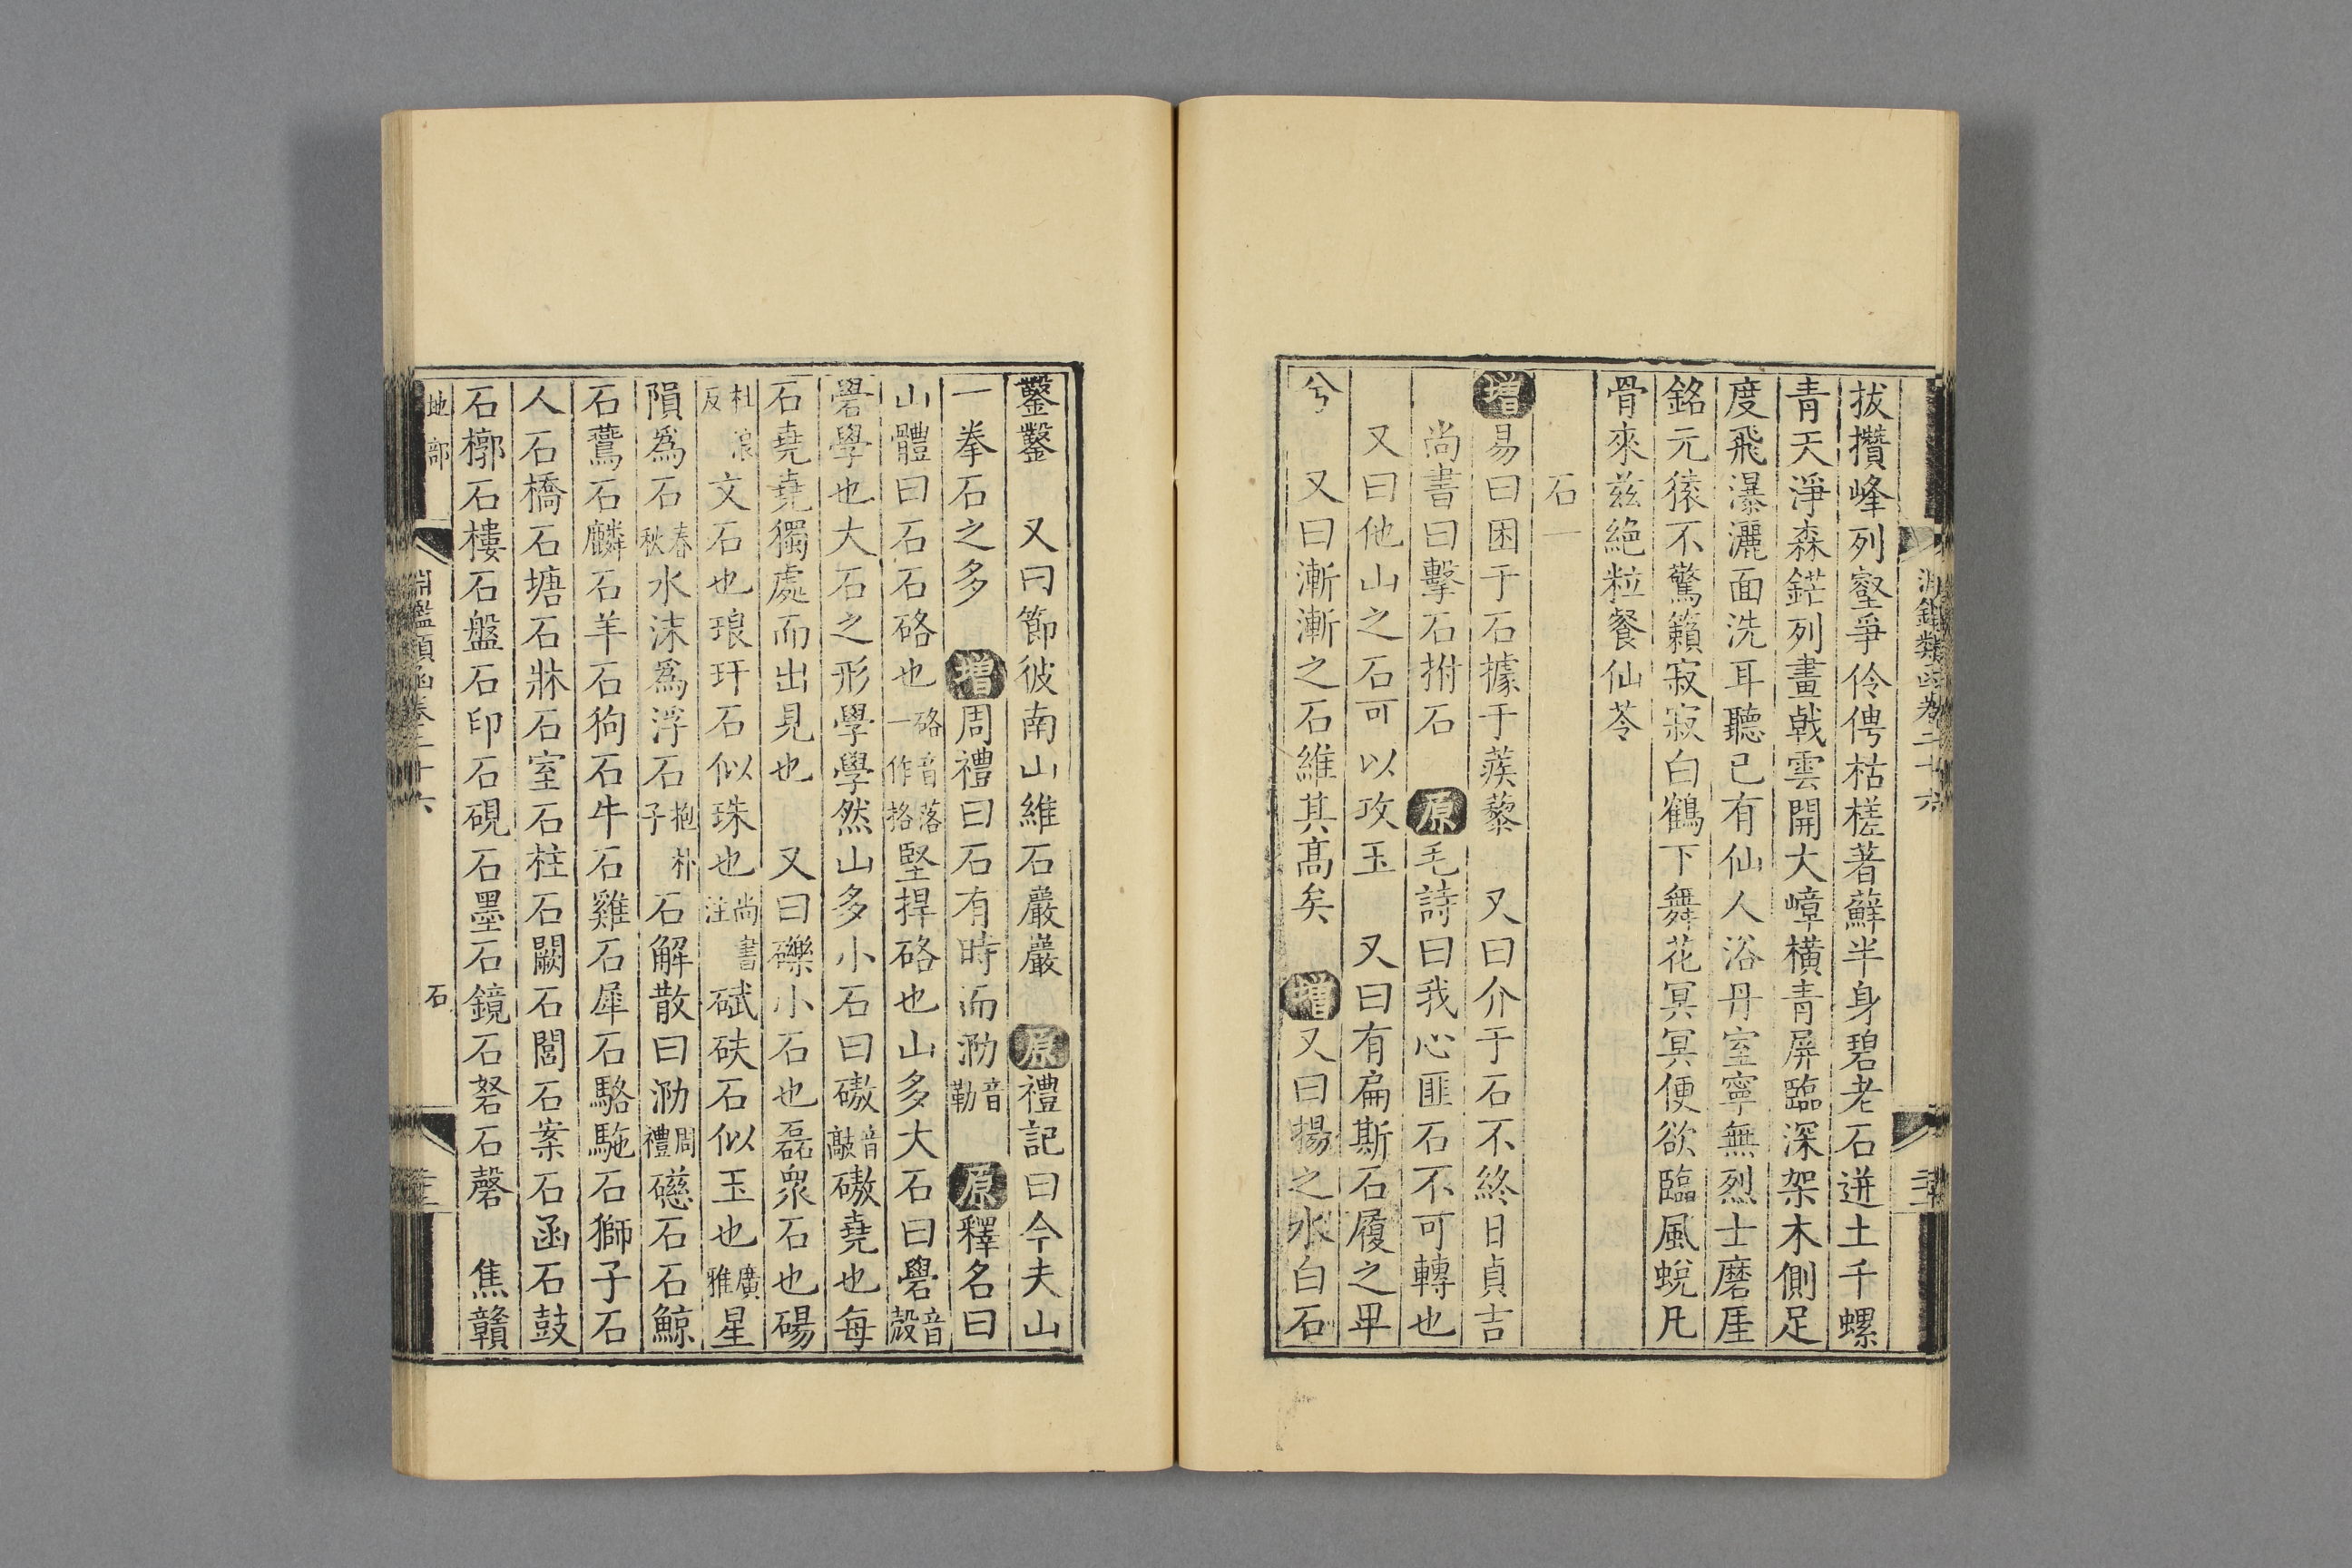 拔攢峰列壑爭伶俜枯槎著蘚半身碧老石迸土千螺
青天淨森鋩列畫戟雲開大嶂橫青屏臨深架木側足
度飛瀑灑面洗耳聽已有仙人浴丹室寧無烈士磨厓
銘元猿不驚籟寂寂白鶴下舞花冥冥便欲臨風蛻凡
骨來兹絶粒餐仙苓
石一
增易曰困于石據于蒺藜 又曰介于石不終日貞吉
尚書曰擊石拊石 原毛詩曰我心匪石不可轉也
又曰他山之石可以攻玉 又曰有扁斯石履之卑
兮 又曰漸漸之石維其高矣 增又曰揚之水白石
鑿鑿 又曰節彼南山維石巖巖 原禮記曰今夫山
一拳石之多 增周禮曰石有時而泐音勒 原釋名曰
山體曰石石硌也硌音落一作挌堅捍硌也山多大石曰礐音殼
礐學也大石之形學學然山多小石曰磝音敲磝堯也每
石堯堯獨處而出見也 又曰礫小石也磊衆石也碭
杜浪反文石也琅玕石似珠也尚書注碔砆石似玉也廣雅星
隕爲石春秋水沫爲浮石抱朴子石解散曰泐周禮礠石石鯨
石鷰石麟石羊石狗石牛石雞石犀石駱駞石獅子石
人石橋石塘石牀石室石柱石闕石閣石案石函石鼓
石槨石樓石盤石印石硯石墨石鏡石砮石磬 焦贛
地部
淵鑑類函卷二十六
石